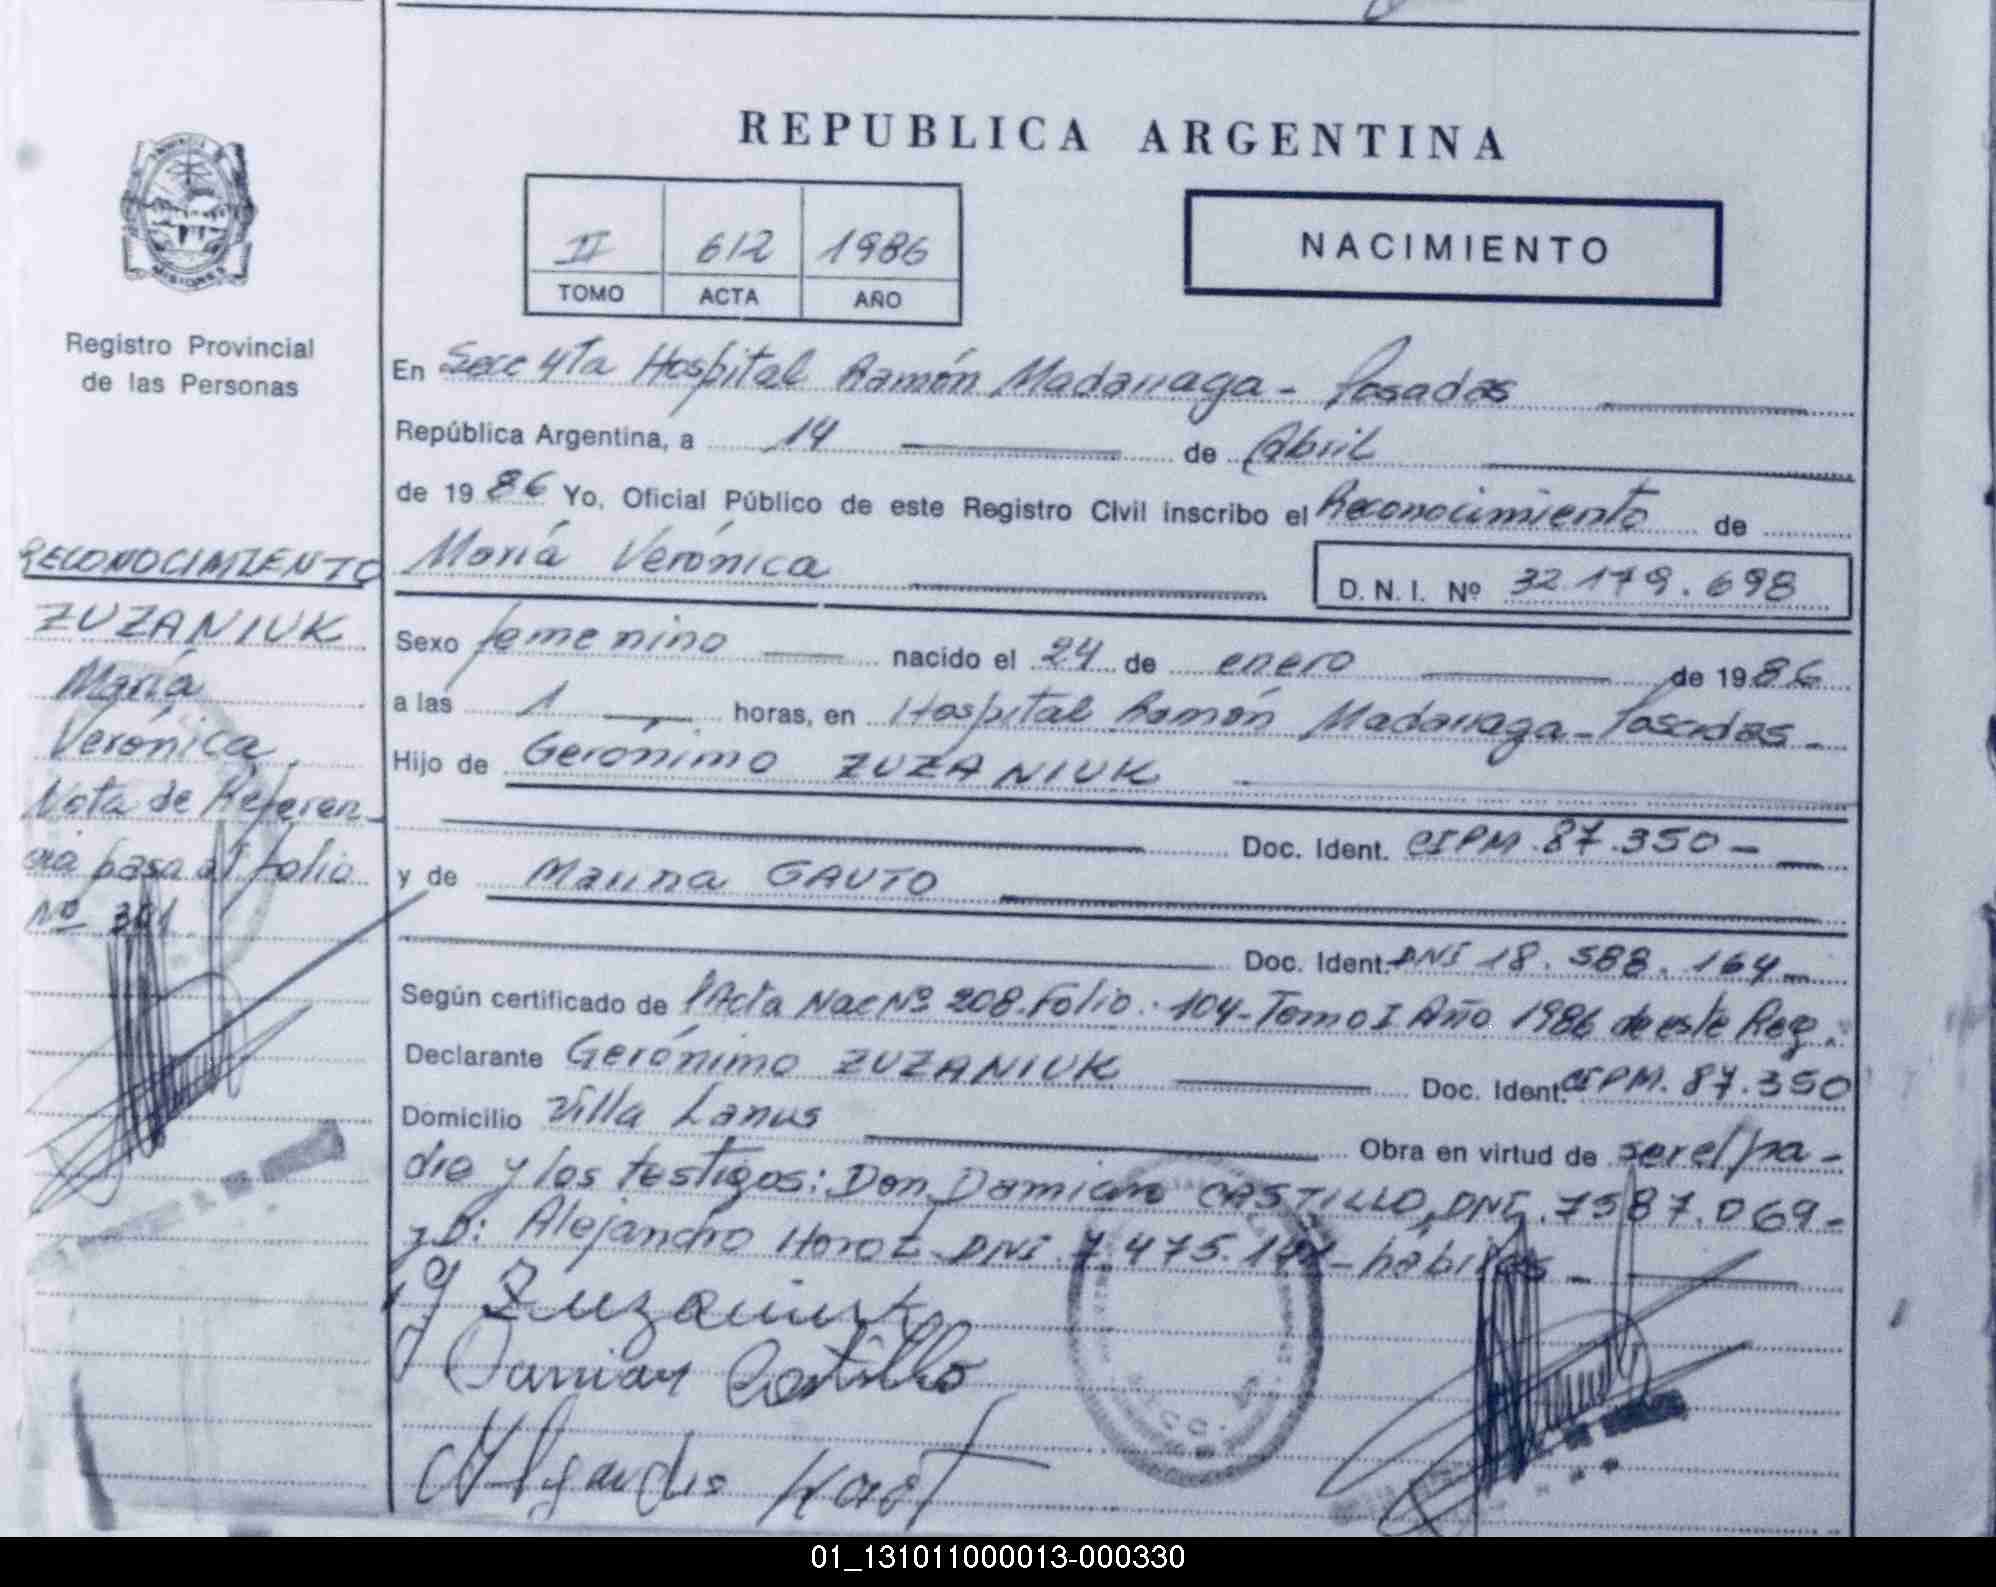 REPUBLICA ARGENTINA
II 612 1986
TOMO ACTA AÑO
NACIMIENTO
MISIONES
Registro Provincial
de las Personas
RECONOCIMIENTO
ZUZANIUK
María
Verónica
Nota de Referen-
cia pasa al folio
Nº 301
En Secc 4ta Hospital Ramón Madariaga - Posadas
República Argentina, a 14 de Abril
de 1986 Yo, Oficial Público de este Registro Civil inscribo el Reconocimiento de
María Verónica D.N.I. Nº 32.179.698
Sexo femenino nacido el 24 de enero de 1986
a las 1 horas, en Hospital Ramón Madariaga - Posadas -
Hijo de Gerónimo ZUZANIUK
Doc. Ident. CIPM. 87.350 -
y de Marina GAUTO
Doc. Ident. DNI 18.588.164 -
Según certificado de Acta Nac Nº 208. Folio. 104 - Tomo I Año 1986 de este Reg.
Declarante Gerónimo ZUZANIUK Doc. Ident. CIPM. 87.350
Domicilio Villa Lanus Obra en virtud de ser el pa-
dre y los testigos: Don Damian CASTILLO, DNI. 7587.069 -
y D: Alejandro DNI. 7.475. - hábiles -
Zuzaniuk
Damian Castillo
01_131011000013-000330